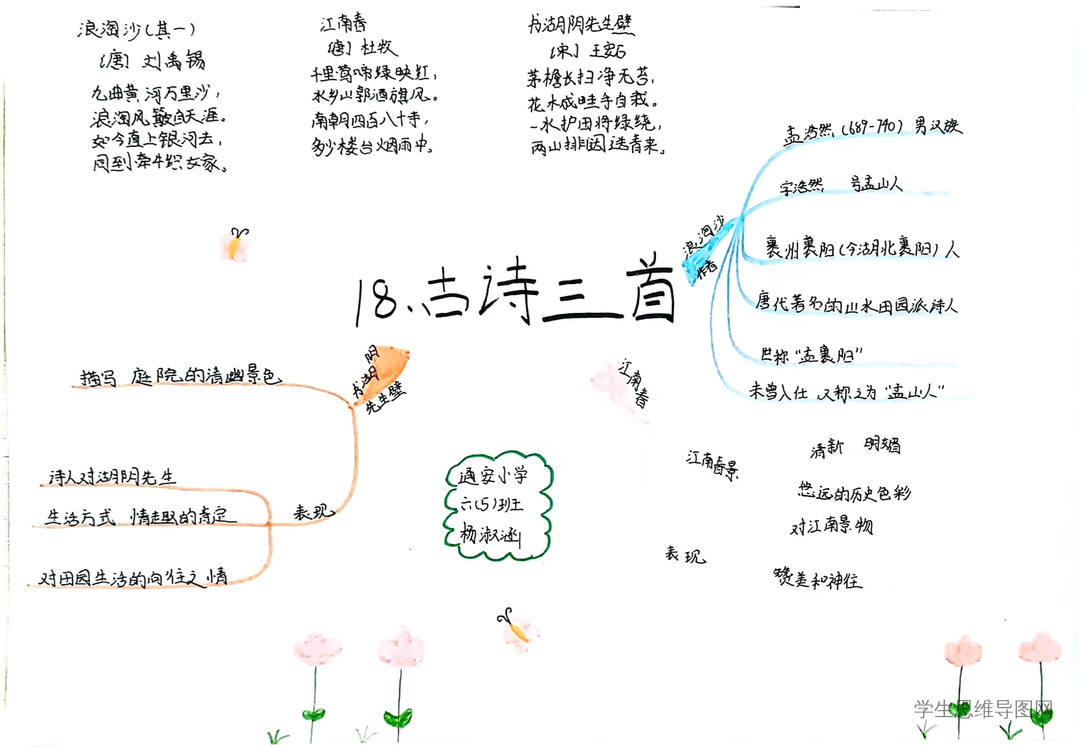 浪淘沙(其一)
(唐) 刘禹锡
九曲黄河万里沙，
浪淘风簸自天涯。
如今直上银河去，
同到牵牛织女家。
江南春
(唐) 杜牧
千里莺啼绿映红，
水乡山郭酒旗风。
南朝四百八十寺，
多少楼台烟雨中。
书湖阴先生壁
(宋) 王安石
茅檐长扫净无苔，
花木成畦手自栽。
一水护田将绿绕，
两山排闼送青来。
18.古诗三首
浪淘沙
作者
孟浩然(689-740) 男汉族
字浩然 号孟山人
襄州襄阳(今湖北襄阳)人
唐代著名的山水田园派诗人
世称“孟襄阳”
未曾入仕 又称之为“孟山人”
书湖阴
先生壁
描写 庭院的清幽景色
表现
诗人对湖阴先生
生活方式 情趣的肯定
对田园生活的向往之情
江南春
江南春景
清新 明媚
悠远的历史色彩
表现
对江南景物
赞美和神往
通安小学
六(5)班
杨淑涵
学生思维导图网